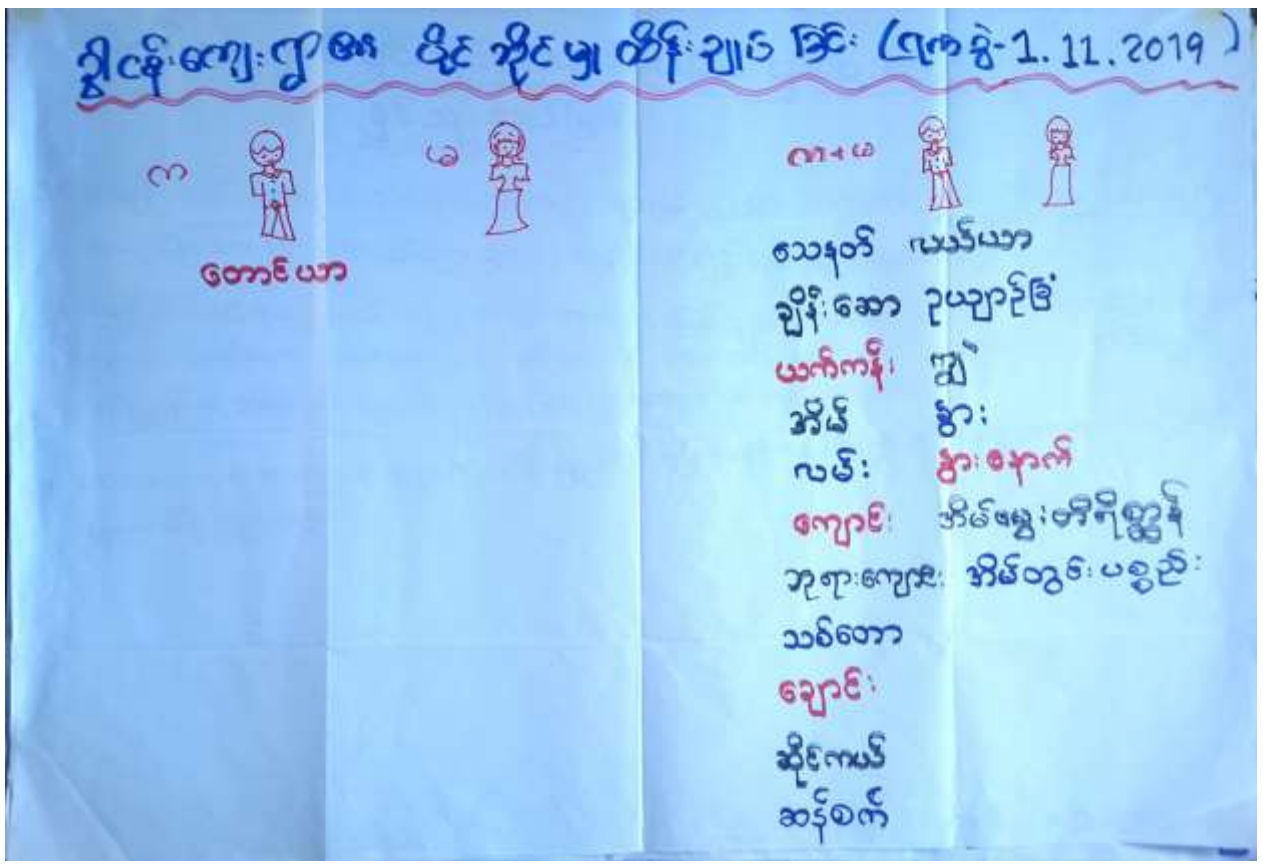 ဒွါငန်းကျေးရွာ၏ ပိုင်ဆိုင်မှု ထိန်းချုပ်ခြင်း (ရက်စွဲ-1.11.2019)
က ယ က+ယ
တောင်ယာ
သေနတ် လယ်ယာ
ချိန်းဆော ဥယျာဉ်ခြံ
ယက်ကန်း ကျွဲ
အိမ် နွား
လမ်း နွားနောက်
ကျောင်း အိမ်မွေးတိရိစ္ဆာန်
ဘုရားကျောင်း အိမ်တွင်းပစ္စည်း
သစ်တော
ချောင်း
ဆိုင်ကယ်
ဆန်စက်